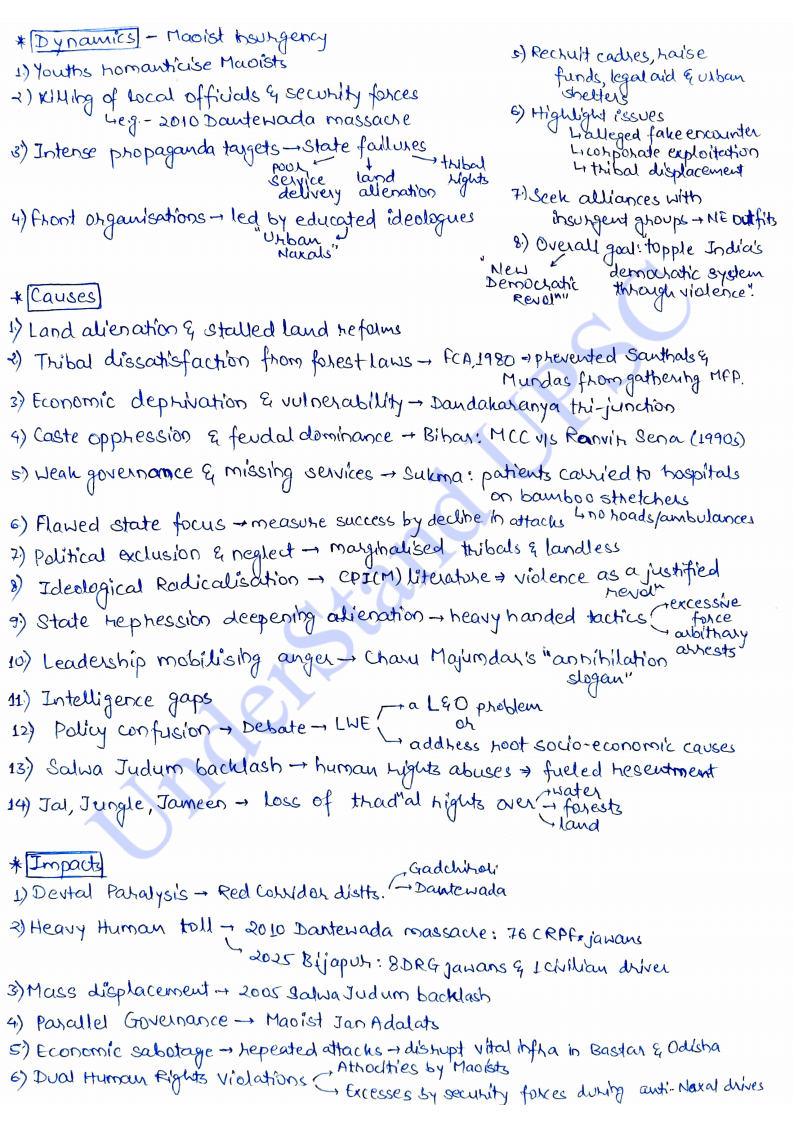 * Dynamics - Maoist Insurgency
1) Youths romanticise Maoists
2) Killing of local officials & security forces
↳ e.g. - 2010 Dantewada massacre
3) Intense propaganda targets → State failures
poor service delivery
land alienation
tribal rights
4) Front organisations → led by educated ideologues
"Urban Naxals"
5) Recruit cadres, raise
funds, legal aid & urban
shelters
6) Highlight issues
↳ alleged fake encounter
↳ corporate exploitation
↳ tribal displacement
7) Seek alliances with
insurgent groups → NE outfits
8) Overall goal: "topple India's
democratic system
through violence".
"New
Democratic
Revolⁿ"
* Causes
1) Land alienation & stalled land reforms
2) Tribal dissatisfaction from forest laws → FCA, 1980 → prevented Santhals &
Mundas from gathering MFP.
3) Economic deprivation & vulnerability → Dandakaranya tri-junction
4) Caste oppression & feudal dominance → Bihar: MCC v/s Ranvir Sena (1990s)
5) Weak governance & missing services → Sukma: patients carried to hospitals
on bamboo stretchers
↳ no roads/ambulances
6) Flawed state focus → measure success by decline in attacks
7) Political exclusion & neglect → marginalised tribals & landless
8) Ideological Radicalisation → CPI(M) literature → violence as a justified
revolⁿ
9) State repression deepening alienation → heavy handed tactics
→ excessive
force
→ arbitrary
arrests
10) Leadership mobilising anger → Charu Majumdar's "annihilation
slogan"
11) Intelligence gaps
12) Policy confusion → Debate → LWE
→ a L&O problem
or
→ address root socio-economic causes
13) Salwa Judum backlash → human rights abuses → fueled resentment
14) Jal, Jungle, Jameen → loss of tradⁿal rights over
→ water
→ forests
→ land
* Impacts
1) Devtal Paralysis → Red Corridor distts.
→ Gadchiroli
→ Dantewada
2) Heavy Human toll → 2010 Dantewada massacre: 76 CRPF jawans
→ 2025 Bijapur: 8 DRG jawans & 1 civilian driver
3) Mass displacement → 2005 Salwa Judum backlash
4) Parallel Governance → Maoist Jan Adalats
5) Economic sabotage → repeated attacks → disrupt vital infra in Bastar & Odisha
6) Dual Human Rights Violations
→ Atrocities by Maoists
→ Excesses by security forces during anti-Naxal drives
UnderStand UPSC